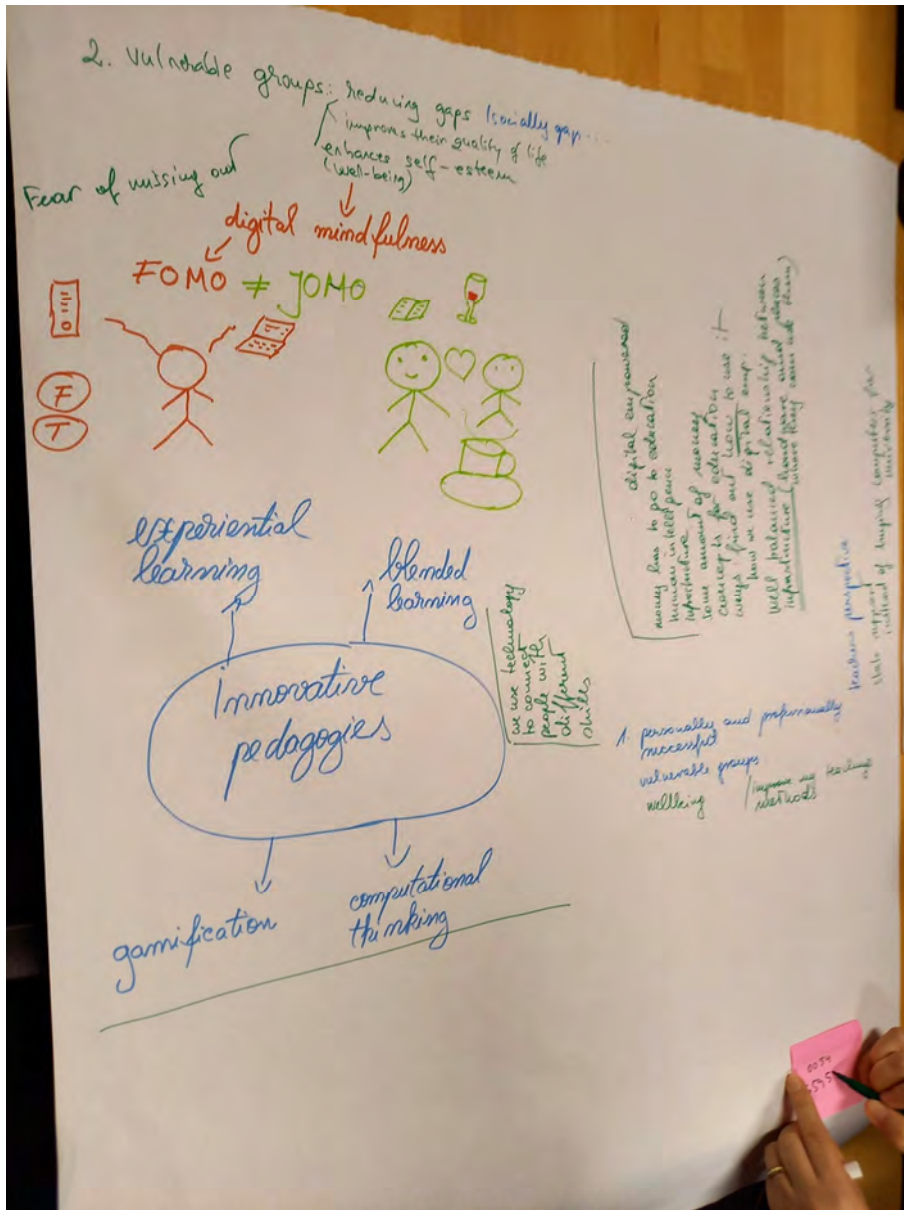 2. Vulnerable groups: reducing gaps (socially gap...
improves their quality of life
enhances self-esteem
(well-being)
Fear of missing out
digital mindfulness
FOMO ≠ JOMO
F
T
experiential
learning
blended
learning
Innovative
pedagogies
gamification
computational
thinking
we use technology
to connect
people with
different
skills
digital empowered
money has to go to education
human
some amount of money
for education
ways find out how to use it
how we use digital emp.
well balanced relationship between
infrastructure (hardware and places
where they can use them)
teachers perspective
state support
instead of buying computer for
university
1. personally and professionally
successful
vulnerable groups
wellbeing
/improve my teaching
methods
0054